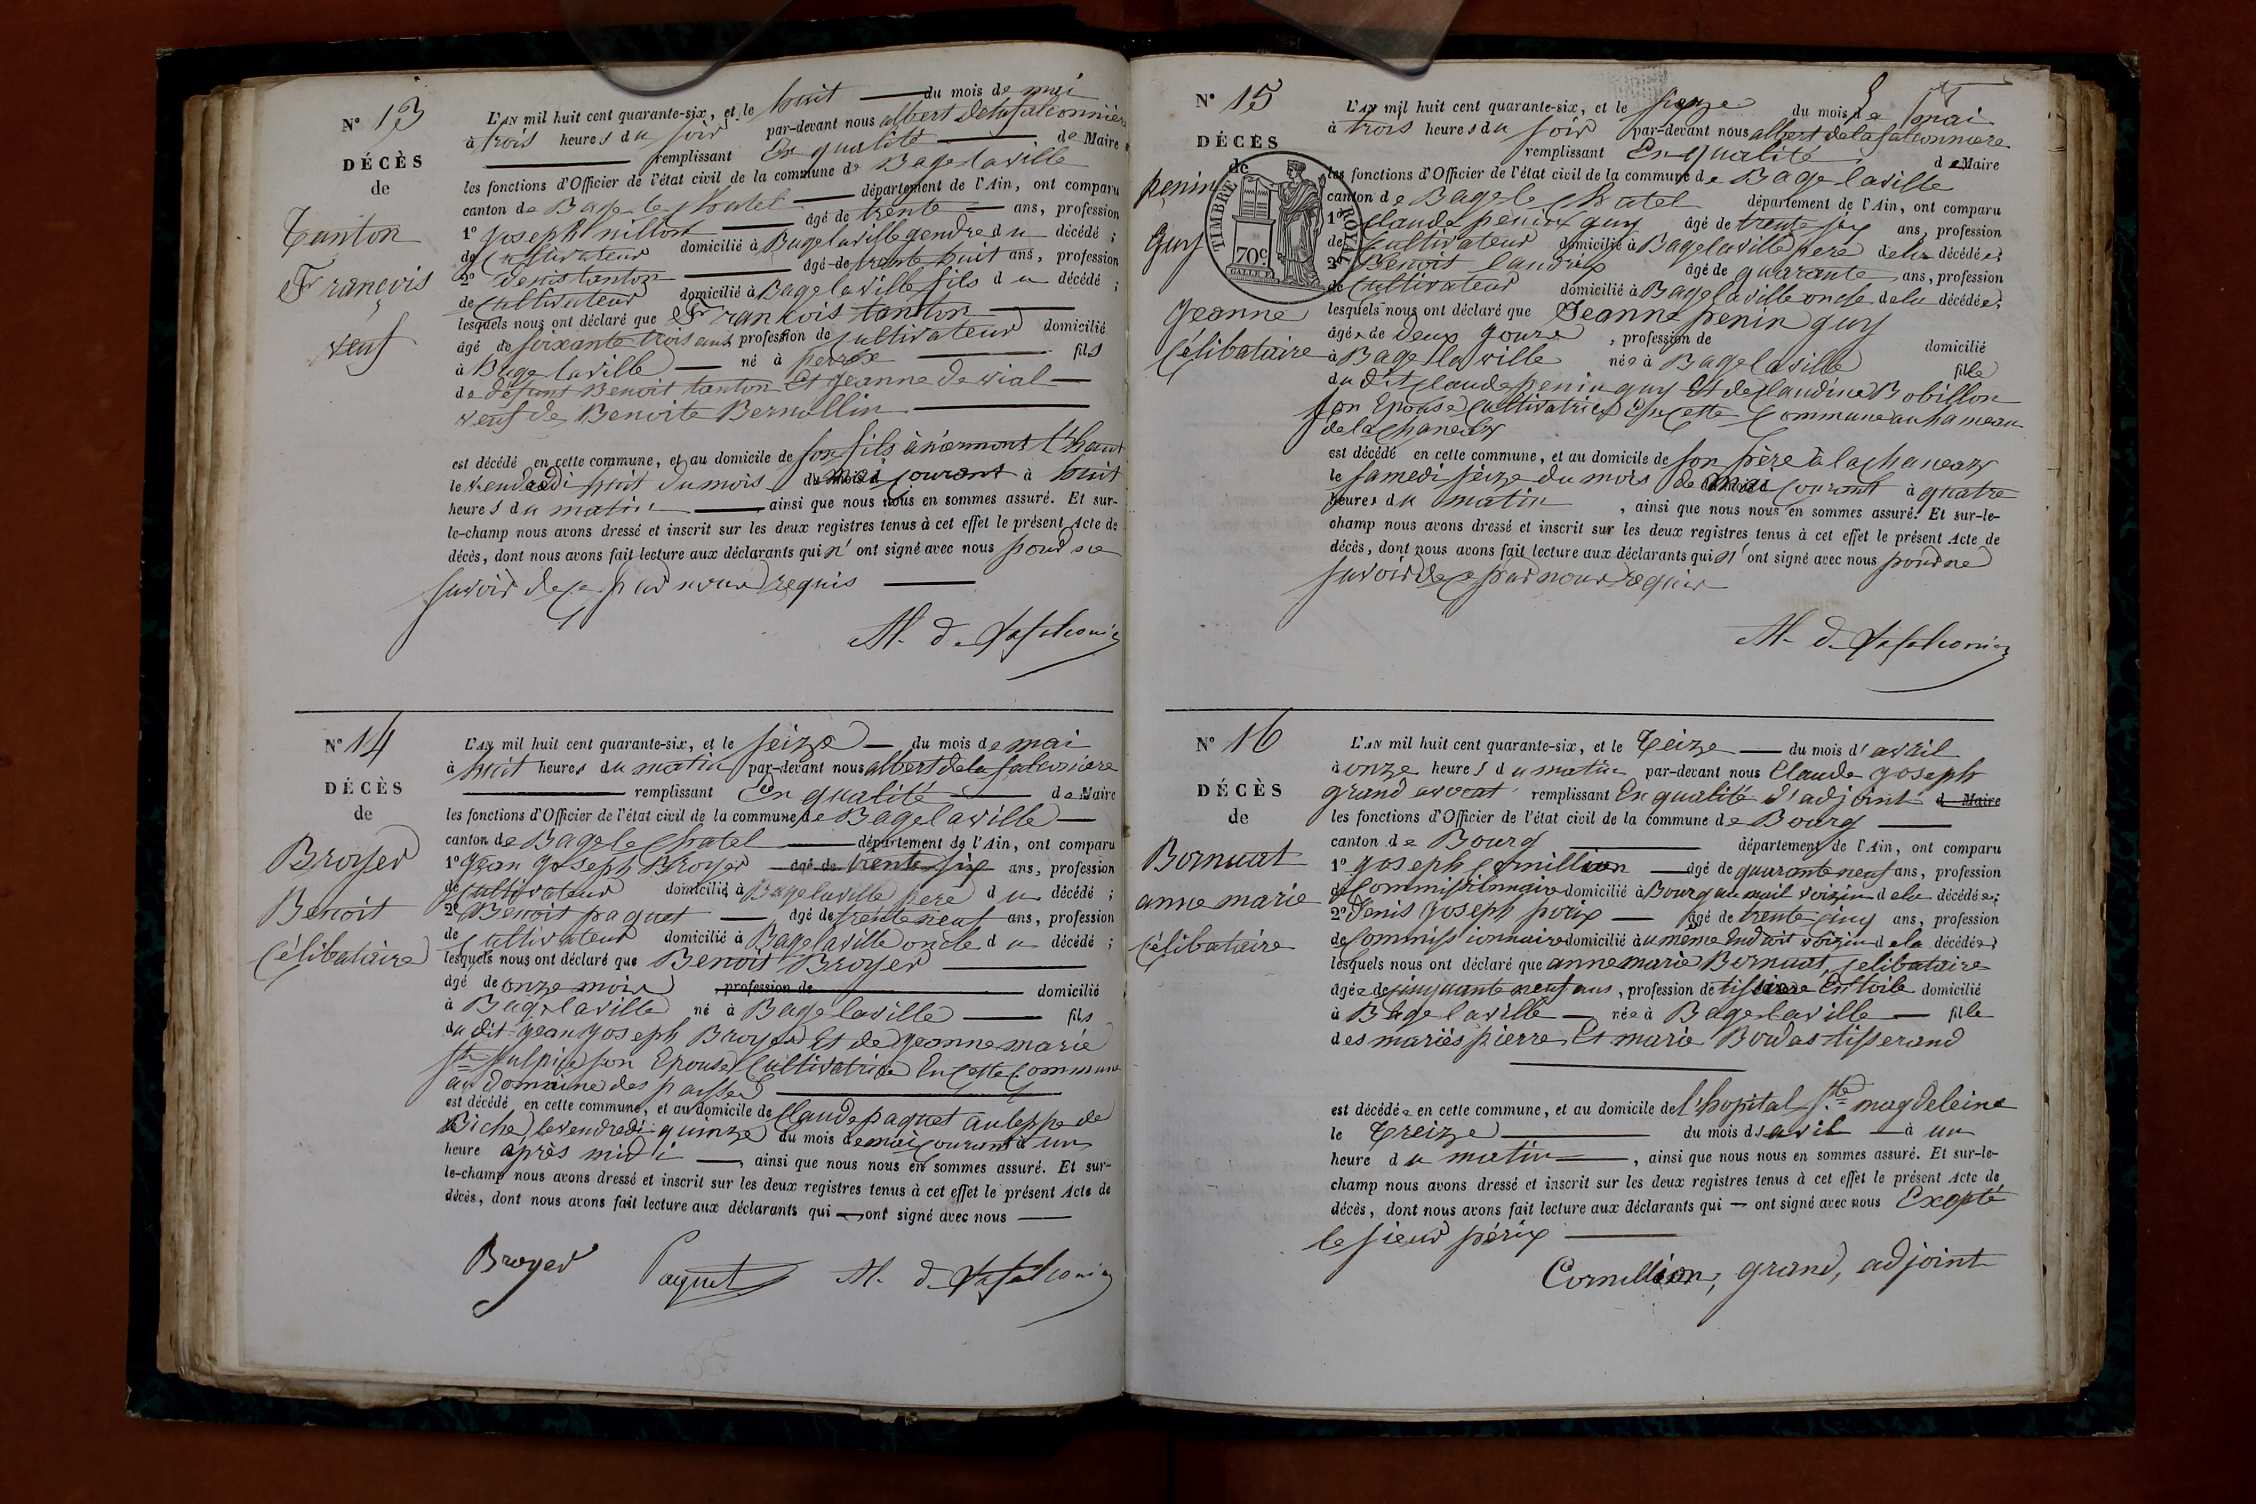 N° 13
DÉCÈS
de
Tanton
François
veuf
L'AN mil huit cent quarante-six, et le huit du mois de mai
à trois heures du soir par-devant nous albert delafalconnière
remplissant En qualité de Maire
les fonctions d'Officier de l'état civil de la commune de Bagelaville
canton de Bage-le-Chatel département de l'Ain, ont comparu
1° Joseph nillon âgé de trente ans, profession
de Cultivateur domicilié à Bagelaville gendre du décédé ;
2° denis tanton âgé de trente huit ans, profession
de Cultivateur domicilié à Bagelaville fils du décédé ;
lesquels nous ont déclaré que François tanton
âgé de soixante trois ans profession de Cultivateur domicilié
à Bagelaville né à perrex fils
de defunt Benoit tanton Et jeanne de vial
veuf de Benoite Bernollin
est décédé en cette commune, et au domicile de son fils à l'haut
le vendredi huit du mois de mai courant à huit
heures du matin ainsi que nous nous en sommes assuré. Et sur-
le-champ nous avons dressé et inscrit sur les deux registres tenus à cet effet le présent Acte de
décès, dont nous avons fait lecture aux déclarants qui n' ont signé avec nous pour ne
savoir de ce par nous requis
Al. d. Lafalconie
N° 14
DÉCÈS
de
Broyer
Benoit
Célibataire
L'AN mil huit cent quarante-six, et le seize du mois de mai
à huit heures du matin par-devant nous albert delafalconiere
remplissant En qualité de Maire
les fonctions d'Officier de l'état civil de la commune de Bagelaville
canton de Bagele Chatel département de l'Ain, ont comparu
1° jean joseph Broyer âgé de trente six ans, profession
de Cultivateur domicilié à Bagelaville pere du décédé ;
2° Benoit paquet âgé de trente neuf ans, profession
de Cultivateur domicilié à Bagelaville oncle du décédé ;
lesquels nous ont déclaré que Benoit Broyer
âgé de onze mois profession de domicilié
à Bagelaville né à Bagelaville fils
du dit jean joseph Broyer Et de jeanne marie
St Sulpice son Epouse Cultivatrice En Cette Commune
au Domaine des
est décédé en cette commune, et au domicile de Claude paquet
Biche, le vendredi quinze du mois de mai courant à un
heure après midi , ainsi que nous nous en sommes assuré. Et sur-
le-champ nous avons dressé et inscrit sur les deux registres tenus à cet effet le présent Acte de
décès, dont nous avons fait lecture aux déclarants qui ont signé avec nous
Broyer Paquet Al. d. Lafalconie
N° 15
DÉCÈS
de
penin
Guy
jeanne
Célibataire
TIMBRE ROYAL
70c
L'AN mil huit cent quarante-six, et le seize du mois de mai
à trois heures du soir par-devant nous albert delafalconniere
remplissant En qualité de Maire
les fonctions d'Officier de l'état civil de la commune de Bagelaville
canton de Bagele Chatel département de l'Ain, ont comparu
1° Claude penin guy âgé de trente six ans, profession
de Cultivateur domicilié à Bagelaville pere de la décédée ;
2° Benoit âgé de quarante ans, profession
de Cultivateur domicilié à Bagelaville oncle de la décédée ;
lesquels nous ont déclaré que Jeanne penin guy
âgée de deux jours , profession de domicilié
à Bagelaville née à Bagelaville fille
du dit Claude penin guy Et de Claudine Bobillon
son Epouse Cultivatrice En Cette Commune au hameau
de la Chaneaux
est décédé en cette commune, et au domicile de son père à la Chaneaux
le samedi seize du mois de mai courant à quatre
heures du matin , ainsi que nous nous en sommes assuré. Et sur-le-
champ nous avons dressé et inscrit sur les deux registres tenus à cet effet le présent Acte de
décès, dont nous avons fait lecture aux déclarants qui n' ont signé avec nous pour ne
savoir de ce par nous requis
Al. d. Lafalconie
N° 16
DÉCÈS
de
Bornuat
anne marie
Célibataire
L'AN mil huit cent quarante-six, et le treize du mois d'avril
à onze heures du matin par-devant nous Claude joseph
grand avocat remplissant En qualité d'adjoint de Maire
les fonctions d'Officier de l'état civil de la commune de Bourg
canton de Bourg département de l'Ain, ont comparu
1° joseph Cornillion âgé de quarante neuf ans, profession
de Commissionnaire domicilié à Bourg au mail voisin de la décédée ;
2° Denis joseph perix âgé de trente cinq ans, profession
de Commissionnaire domicilié au même Endroit voisin de la décédée ;
lesquels nous ont déclaré que anne marie Bornuat, celibataire
âgée de cinquante neuf ans , profession de tissiere En toile domicilié
à Bagelaville née à Bagelaville fille
des mariés pierre Et marie Bordas tisserand
est décédée en cette commune, et au domicile de l'hopital Ste magdeleine
le treize du mois d'avril à un
heure du matin , ainsi que nous nous en sommes assuré. Et sur-le-
champ nous avons dressé et inscrit sur les deux registres tenus à cet effet le présent Acte de
décès, dont nous avons fait lecture aux déclarants qui ont signé avec nous Excepté
le sieur périx
Cornillion, grand, adjoint